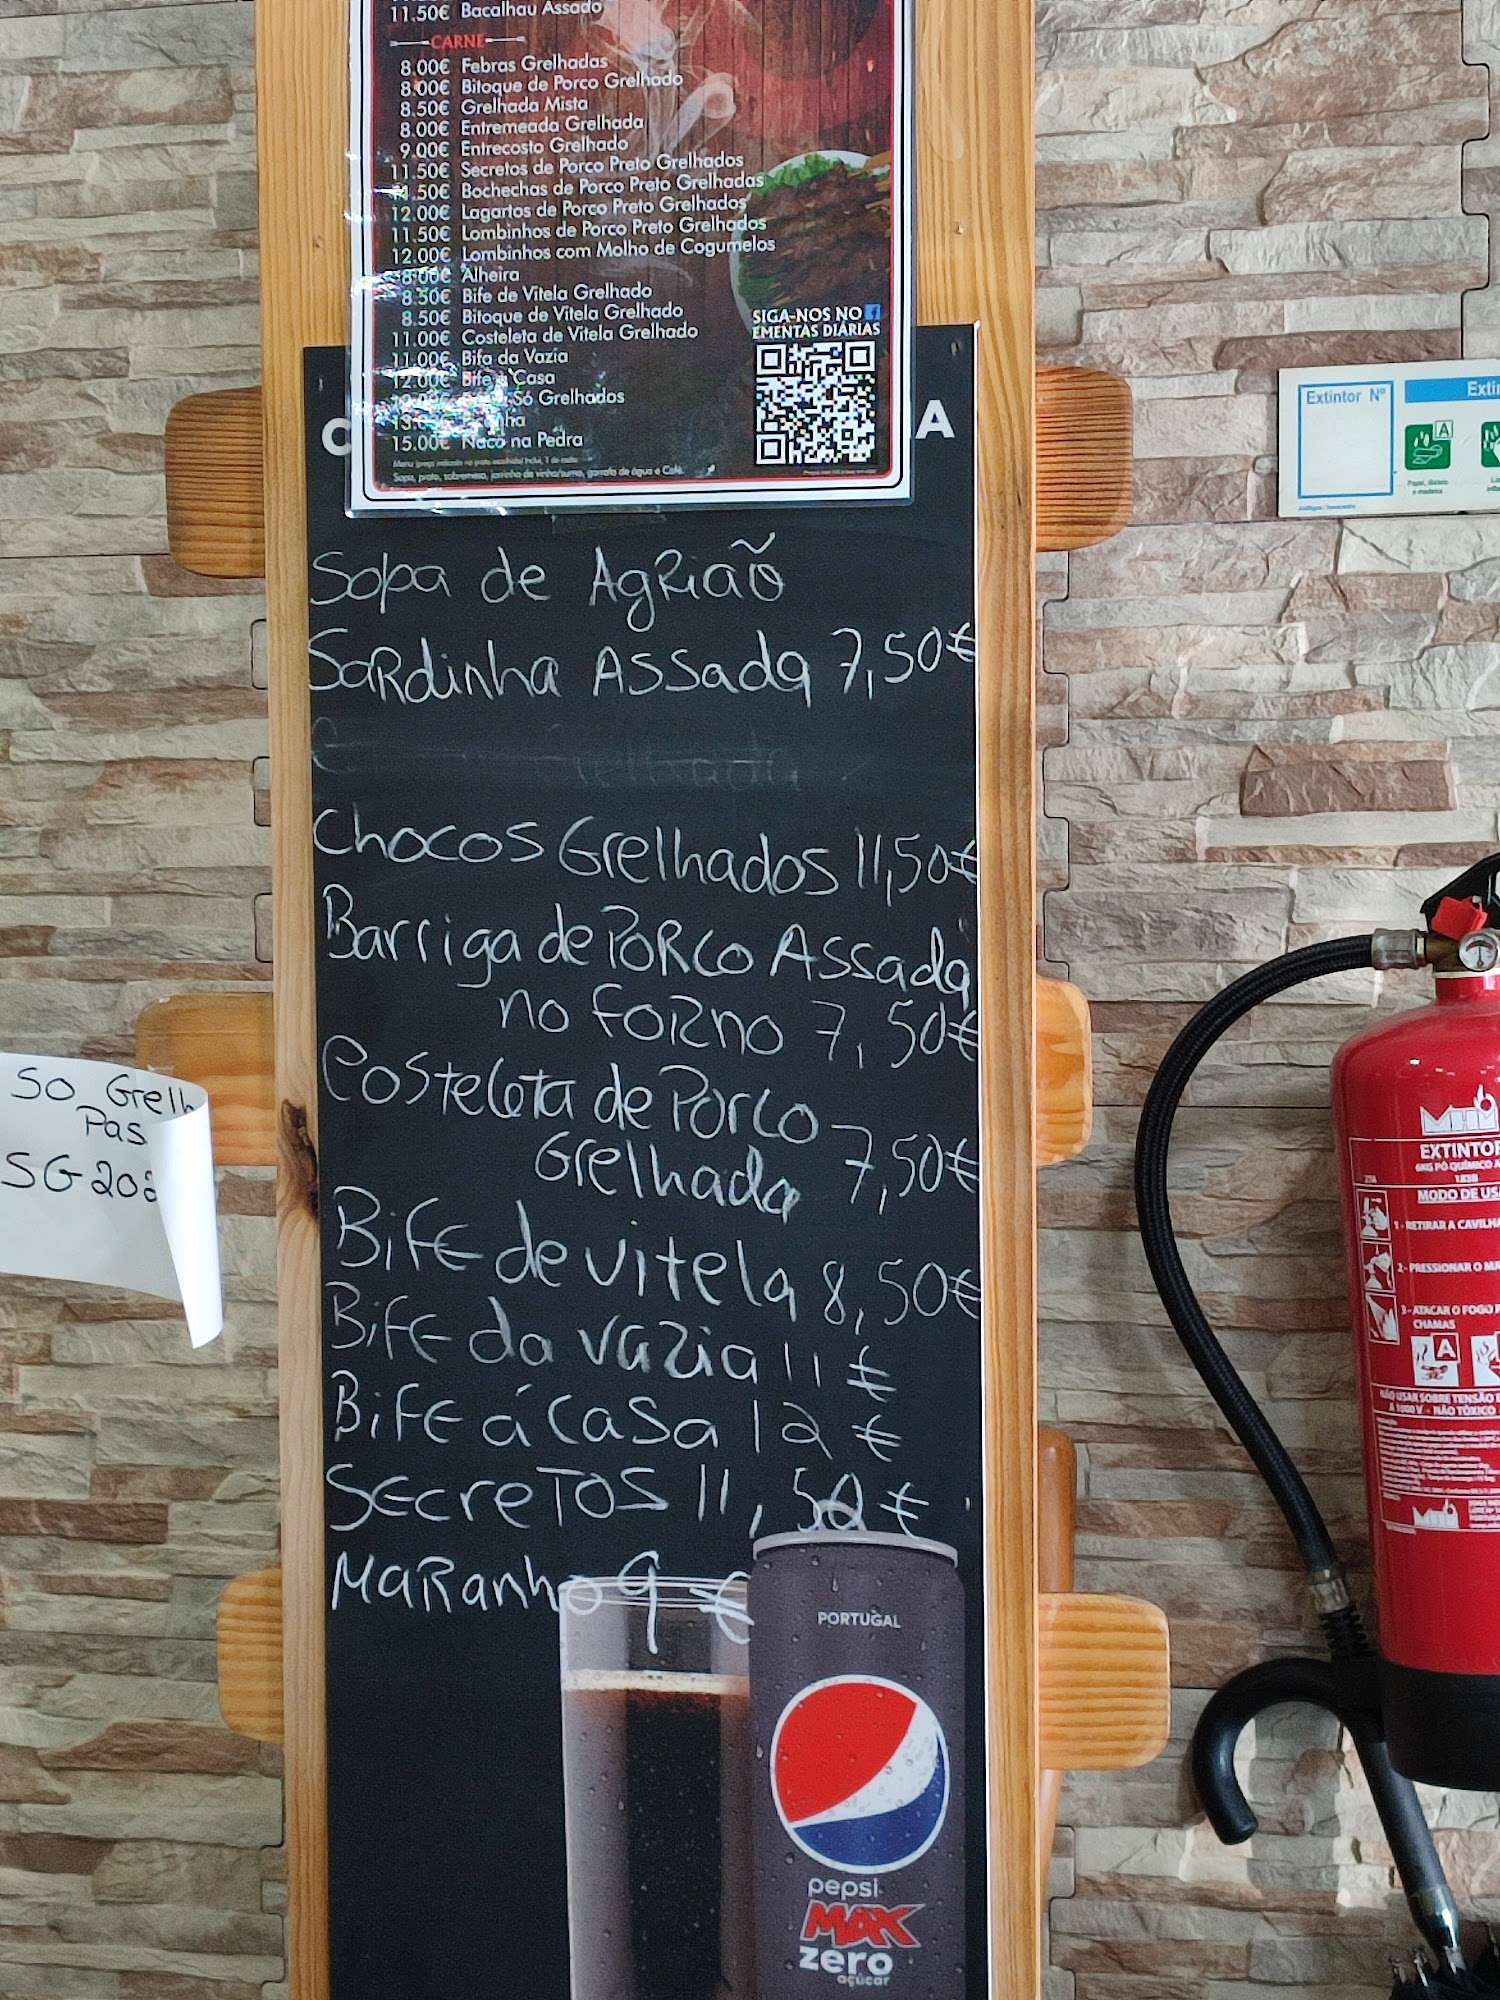 11.50€ Bacalhau Assado
CARNE
8.00€ Febras Grelhadas
8.00€ Bitoque de Porco Grelhado
8.50€ Grelhada Mista
8.00€ Entremeada Grelhada
9.00€ Entrecosto Grelhado
11.50€ Secretos de Porco Preto Grelhados
11.50€ Bochechas de Porco Preto Grelhadas
12.00€ Lagartos de Porco Preto Grelhados
11.50€ Lombinhos de Porco Preto Grelhados
12.00€ Lombinhos com Molho de Cogumelos
8.00€ Alheira
8.50€ Bife de Vitela Grelhado
8.50€ Bitoque de Vitela Grelhado
11.00€ Costeleta de Vitela Grelhado
11.00€ Bifa da Vazia
12.00€ Bife á Casa
Só Grelhados
15.00€ Naco na Pedra
Sopa, prato, sobremesa, jarrinho de vinho/sumo, garrafa de água e Café.
SIGA-NOS NO
EMENTAS DIÁRIAS
A
Sopa de Agrião
Sardinha Assada 7,50€
Grelhada
Chocos Grelhados 11,50€
Barriga de Porco Assada
no forno 7,50€
Costeleta de Porco
Grelhada 7,50€
Bife de vitela 8,50€
Bife da vazia 11€
Bife á casa 12€
Secretos 11,50€
Maranho 9€
PORTUGAL
pepsi
MAX
zero
açúcar
SO Grelh
Pas
SG202
Extintor Nº
Extin
A
Papel, têxteis
e madeira
EXTINTOR
6KG PÓ QUÍMICO A
MODO DE US
1 - RETIRAR A CAVILHA
2 - PRESSIONAR O MA
3 - ATACAR O FOGO P
CHAMAS
A
NÃO USAR SOBRE TENSÃO
A 1000 V - NÃO TÓXICO